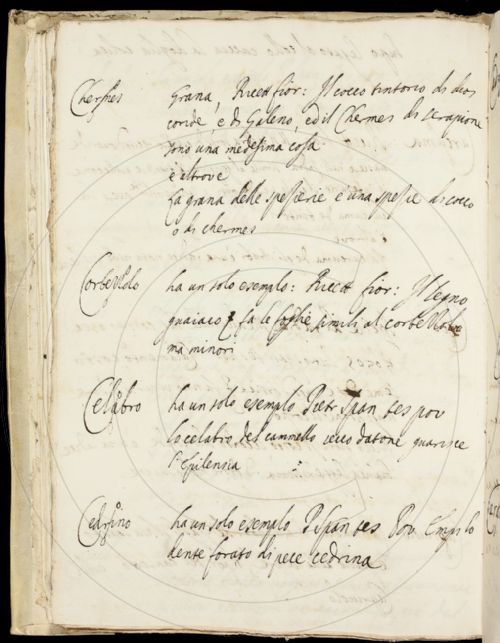 Chermes Grana, Ricett fior: Il cocco tintorio di dios
coride, e di Galeno, ed il Chermes di Serapione
sono una medesima cosa
e altrove
La grana delle spezierie è una spezie di cocco
o di chermes
Corbezzolo ha un solo esempio: Ricett fior: Il legno
guaiaco fa le foglie simili al corbezzolo
ma minori
Celabro ha un solo esempio Pietr Span tes pov
lo celabro del cammello secco datone guarisce
l'Epilensia
Cedrino ha un solo esempio P Span tes Pov Empi lo
dente forato di pece cedrina